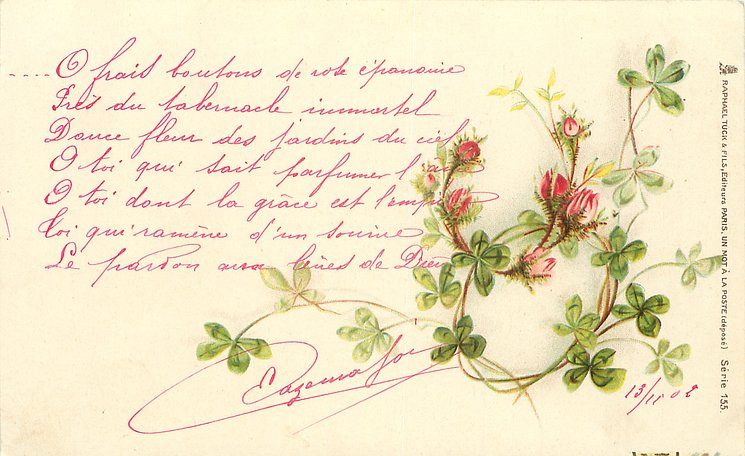 ....O frais boutons de rose épanouie
Près du tabernacle immortel
Douce fleur des jardins du ciel
O toi qui sait parfumer l'
O toi dont la grâce est l'empire
Toi qui ramène d'un sourire
Le pardon aux lèvres de Dieu
13/11 02
RAPHAEL TUCK & FILS, Editeurs PARIS, UN MOT À LA POSTE (déposé) Série 155.